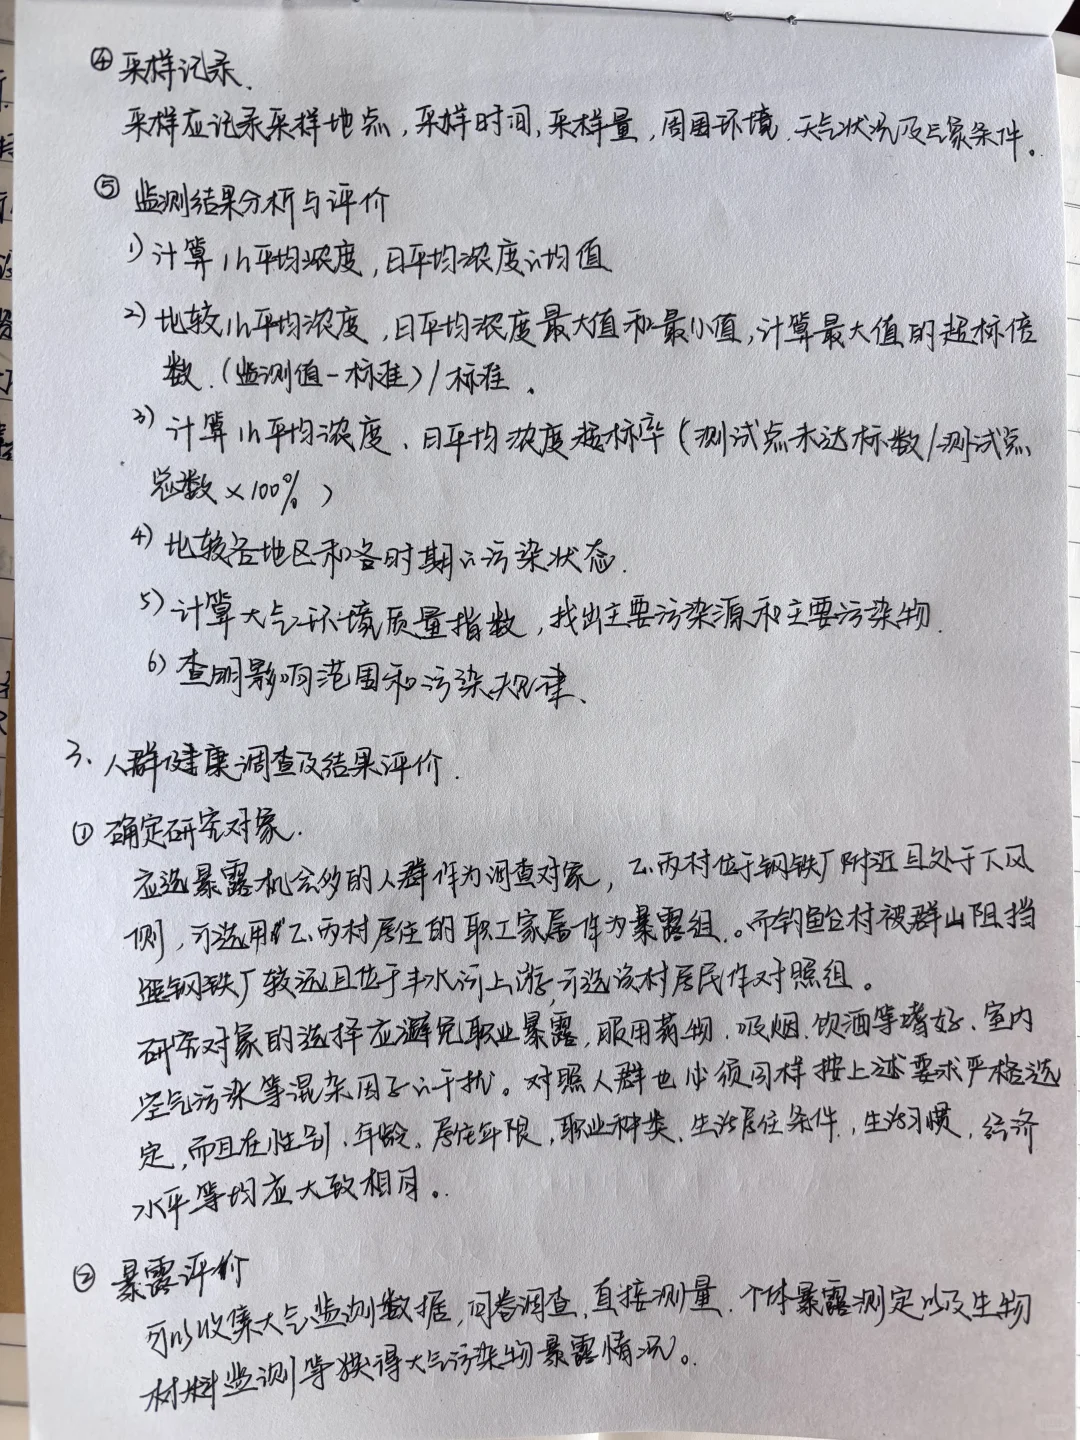 ④ 采样记录.
采样应记录采样地点,采样时间,采样量,周围环境、天气状况及气象条件。
⑤ 监测结果分析与评价
1) 计算1h平均浓度,日平均浓度的均值
2) 比较1h平均浓度,日平均浓度最大值和最小值,计算最大值的超标倍
数.(监测值-标准)/标准。
3) 计算1h平均浓度、日平均浓度超标率(测试点未达标数/测试点
总数×100%)
4) 比较各地区和各时期的污染状态.
5) 计算大气环境质量指数,找出主要污染源和主要污染物.
6) 查明影响范围和污染规律、
3、人群健康调查及结果评价.
① 确定研究对象.
应选暴露机会多的人群作为调查对象,乙、丙村位于钢铁厂附近且处于下风
侧,可选用乙、丙村居住的职工家属作为暴露组。而钓鱼台村被群山阻挡
距钢铁厂较远且位于丰水河上游,可选该村居民作对照组。
研究对象的选择应避免职业暴露,服用药物、吸烟、饮酒等嗜好、室内
空气污染等混杂因子的干扰。对照人群也必须同样按上述要求严格选
定,而且在性别、年龄、居住年限,职业种类、生活居住条件,生活习惯,经济
水平等均应大致相同。
② 暴露评价
可以收集大气监测数据,问卷调查、直接测量、个体暴露测定以及生物
材料监测等获得大气污染物暴露情况。